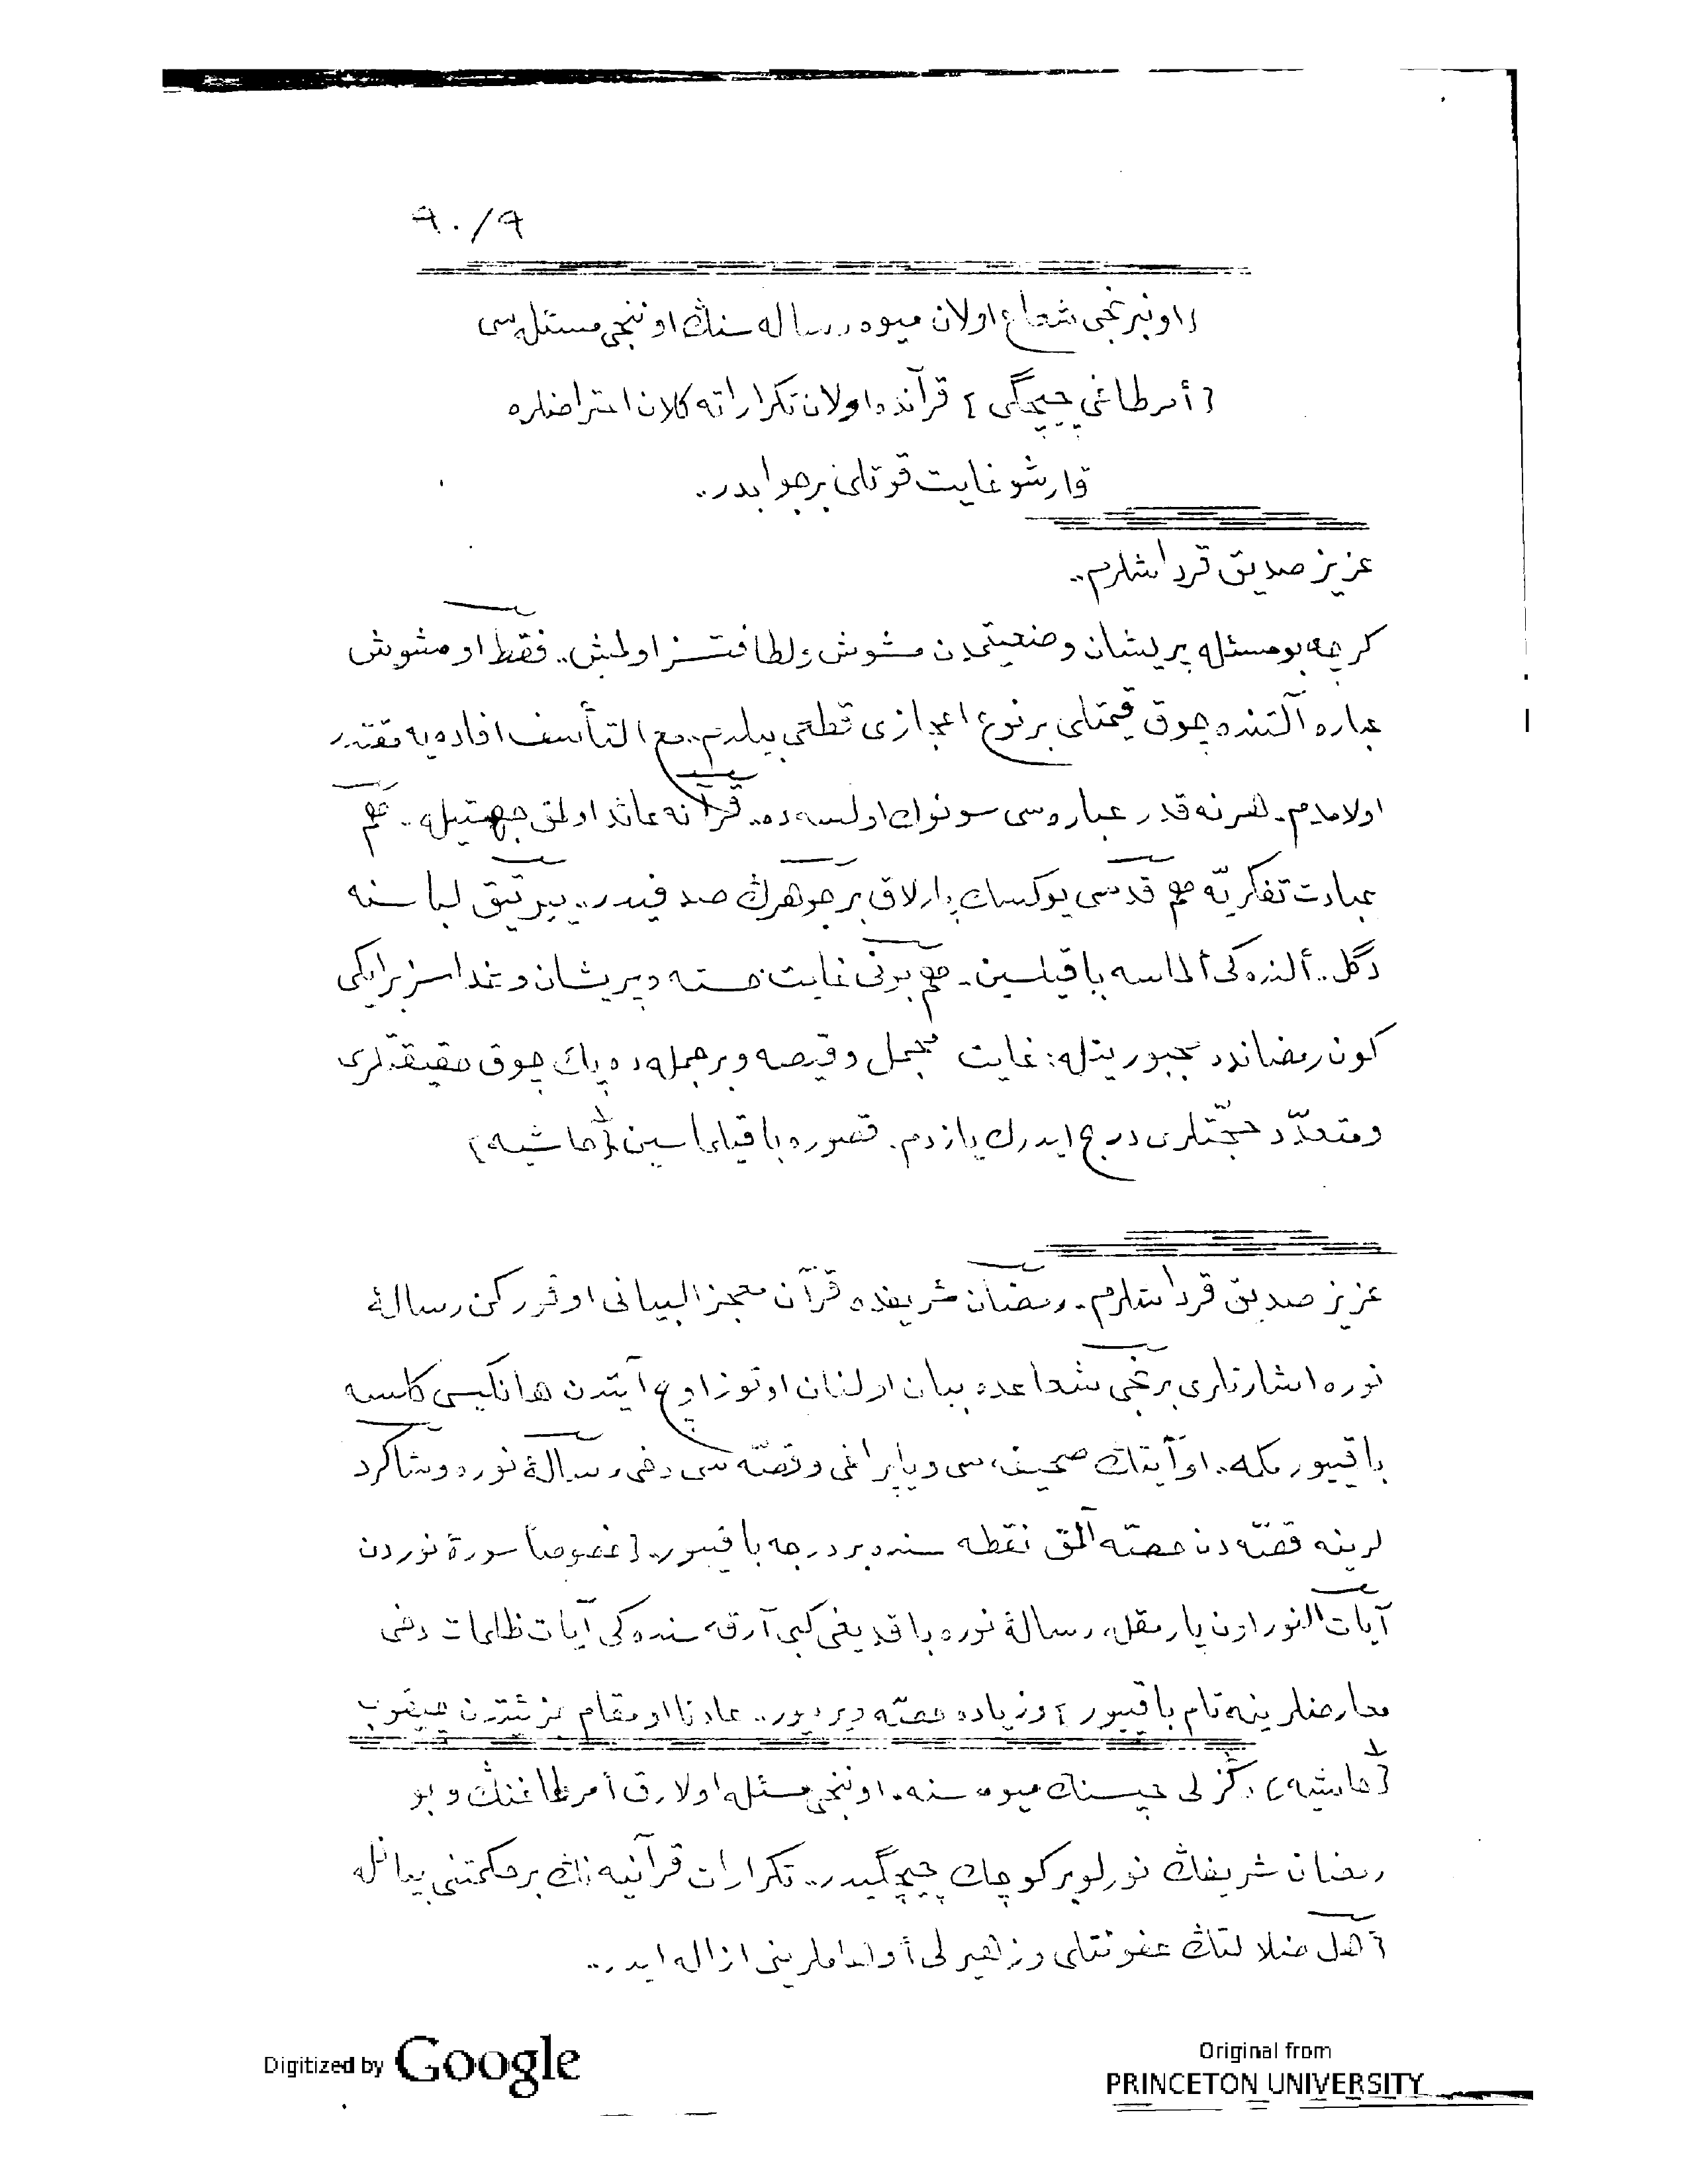 ٩٠/٩
[اونبرنجی شعاع اولان میوه رساله سنڭ اوننجی مسئله سی
[أمرطاغی چیچگی] قرآنده اولان تکراراته کلان اعتراضلره
قارشو غایت قوتلی برجوابدر..
عزیز صدیق قرداشلرم..
کرچه بو مسئله پریشان وضعیتمدن مشوش ولطافتسز اولمش.. فقط او مشوش
عباره آلتنده چوق قیمتلی برنوع اعجازی قطعی بیلدم.. مع التأسف افاده یه مقتدر
اولامادم. هرنه قدر عباره سی سونوك اولسه ده.. قرآنه عائد اولمق جهتیله.. هم
عبادت تفکریّه هم قدسی یوکسك پارلاق برجوهرڭ صدفیدر.. ییرتیق لباسنه
دگل.. ألنده کی ألماسه باقیلسین. هم بونی غایت خسته وپریشان وغداسز برایکی
کون رمضانده مجبوریتله: غایت مجمل وقیصه وبرجمله ده پك چوق حقیقتلری
ومتعدّد حجّتلری درج ایدرك یازدم. قصوره باقیلماسین (حاشیه)
عزیز صدیق قرداشلرم. رمضان شریفده قرآن معجزالبیانی اوقورکن رسالۀ
نوره اشارتلری برنجی شعاعده بیان اولنان اوتوز اوچ آیتدن هانکیسی کلسه
باقییورمکه.. او آیتڭ صحیفه سی ویاپراغی وقصّه سی دخی رسالۀ نوره وشاکرد
لرینه قصّه دن حصّه آلمق نقطه سنده بردرجه باقییور. [خصوصاً سورۀ نوردن
آیات النور اون پارمقله رسالۀ نوره باقدیغی کبی آرقه سنده کی آیات ظلمات دخی
معارضلرینه تام باقییور] وزیاده حصّه ویرییور.. عادتا او مقام جزئیتدن چیقوب
(حاشیه) دکزلی حپسنڭ میوه سنه. اوننجی مسئله اولارق أمرطاغنڭ وبو
رمضان شریفڭ نورلو برکوچك چیچگیدر.. تکرارات قرآنیه نڭ برحکمتنی بیانله
أهل ضلالتڭ عفونتلی وزهیرلی أوهاملرینی ازاله ایدر..
Digitized by Google
Original from
PRINCETON UNIVERSITY